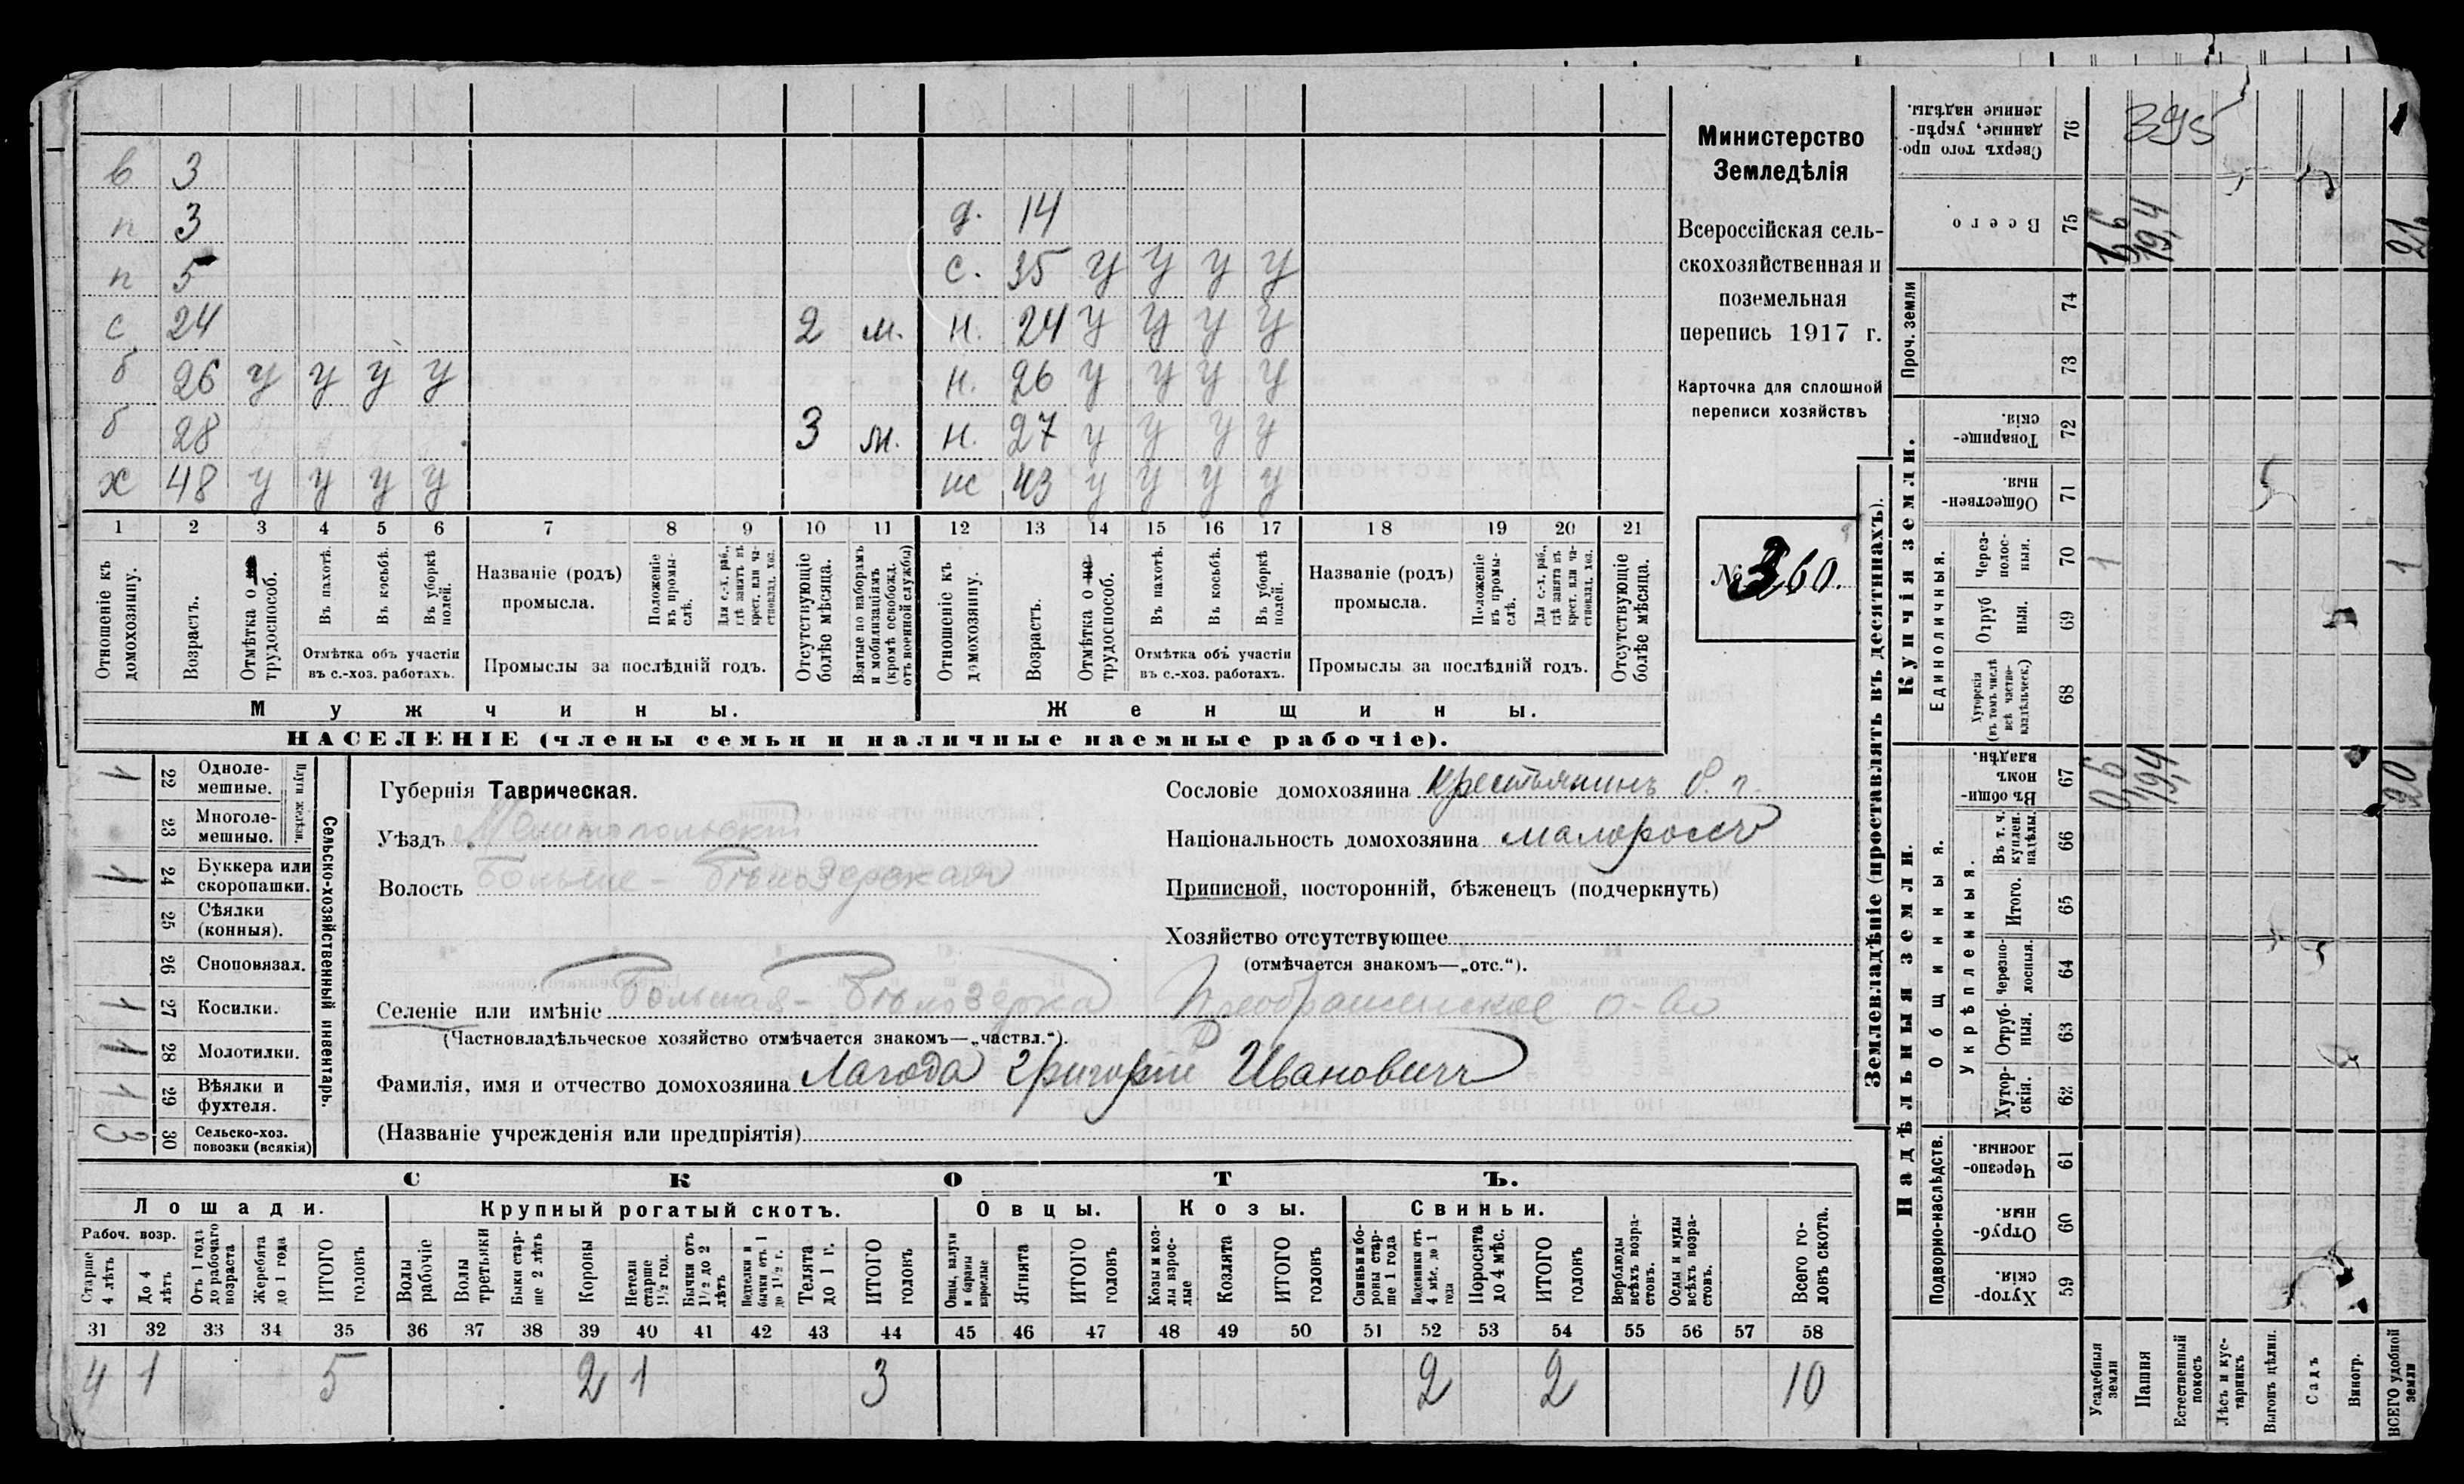 в 3
п 3 д. 14
п 5 с. 35 у у у у
с 24 2 м. н. 24 у у у у
б 26 у у у у н. 26 у у у у
б 28 3 м. н. 27 у у у у
х 48 у у у у 43 у у у у
1 2 3 4 5 6 7 8 9 10 11 12 13 14 15 16 17 18 19 20 21
Отношеніе къ домохозяину.
Возрастъ.
Отмѣтка о трудоспособ.
Въ пахотѣ.
Въ косьбѣ.
Въ уборкѣ полей.
Отмѣтка объ участіи въ с.-хоз. работахъ.
Названіе (родъ) промысла.
Положеніе въ промыслѣ.
Для с.-х. раб., гдѣ занятъ въ крест. или частновлад. хоз.
Промыслы за послѣдній годъ.
Отсутствующіе болѣе мѣсяца.
Взятые по наборамъ и мобилизаціямъ (кромѣ освобожд. отъ военной службы)
Отношеніе къ домохозяину.
Возрастъ.
Отмѣтка о трудоспособ.
Въ пахотѣ.
Въ косьбѣ.
Въ уборкѣ полей.
Отмѣтка объ участіи въ с.-хоз. работахъ.
Названіе (родъ) промысла.
Положеніе въ промыслѣ.
Для с.-х. раб., гдѣ занята въ крест. или частновлад. хоз.
Промыслы за послѣдній годъ.
Отсутствующіе болѣе мѣсяца.
Мужчины.
Женщины.
НАСЕЛЕНІЕ (члены семьи и наличные наемные рабочіе).
Министерство
Земледѣлія
Всероссійская сель-
скохозяйственная и
поземельная
перепись 1917 г.
Карточка для сплошной
переписи хозяйствъ
№ 360.
Сельско-хозяйственный инвентарь.
Плуги желѣзн.
22 Однолемешные. 1
23 Многолемешные.
24 Буккера или скоропашки. 1
25 Сѣялки (конныя).
26 Сноповязал.
27 Косилки. 1
28 Молотилки. 1
29 Вѣялки и фухтеля. 1
30 Сельско-хоз. повозки (всякія) 3
Губернія Таврическая.
Уѣздъ Мелитопольскій
Волость Больше-Бѣлозерская
Сословіе домохозяина крестьянинъ
Національность домохозяина малороссъ
Приписной, посторонній, бѣженецъ (подчеркнуть)
Хозяйство отсутствующее
(отмѣчается знакомъ—„отс.“).
Селеніе или имѣніе Большая-Бѣлозерка Преображенское о-во
(Частновладѣльческое хозяйство отмѣчается знакомъ—„частвл.“).
Фамилія, имя и отчество домохозяина Лагода Григорій Ивановичъ
(Названіе учрежденія или предпріятія)
СКОТЪ.
Лошади. Крупный рогатый скотъ. Овцы. Козы. Свиньи.
Рабоч. возр.
Старше 4 лѣтъ
До 4 лѣтъ
Отъ 1 года до рабочаго возраста
Жеребята до 1 года
ИТОГО головъ
Волы рабочіе
Волы третьяки
Быки старше 2 лѣтъ
Коровы
Нетели старше 1½ год.
Бычки отъ 1½ до 2 лѣтъ
Подтелки и бычки отъ 1 до 1½ г.
Телята до 1 г.
ИТОГО головъ
Овцы, валухи и бараны взрослые
Ягнята
ИТОГО головъ
Козы и козлы взрослые
Козлята
ИТОГО головъ
Свиньи и боровы старше 1 года
Подсвинки отъ 4 мѣс. до 1 года
Поросята до 4 мѣс.
ИТОГО головъ
Верблюды всѣхъ возрастовъ.
Ослы и мулы всѣхъ возрастовъ.
Всего головъ скота.
31 32 33 34 35 36 37 38 39 40 41 42 43 44 45 46 47 48 49 50 51 52 53 54 55 56 57 58
4 1 5 2 1 3 2 2 10
Землевладѣніе (проставлять въ десятинахъ).
Надѣльныя земли.
Купчія земли.
Проч. земли
Подворно-наслѣдств.
Общинныя.
Укрѣпленныя.
Единоличныя.
Хуторскія 59
Отрубныя 60
Черезполосныя. 61
Хуторскія. 62
Отрубныя. 63
Черезполосныя. 64
Итого. 65
Въ т. ч. куплен. надѣлы. 66
Въ общинномъ владѣн. 67
Хуторскія (въ томъ числѣ всѣ частновладѣльческ.) 68
Отрубныя. 69
Черезполосныя. 70
Общественныя. 71
Товарищескія. 72
73
74
Всего 75
Сверхъ того проданные, укрѣпленные надѣлы. 76
Усадебныя земли
Пашня
Естественный покосъ
Лѣсъ и кустарникъ
Выгонъ цѣлин.
Садъ
Виногр.
ВСЕГО удобной земли
0,6 19,4 20
1 1
1,6 19,4 21
395